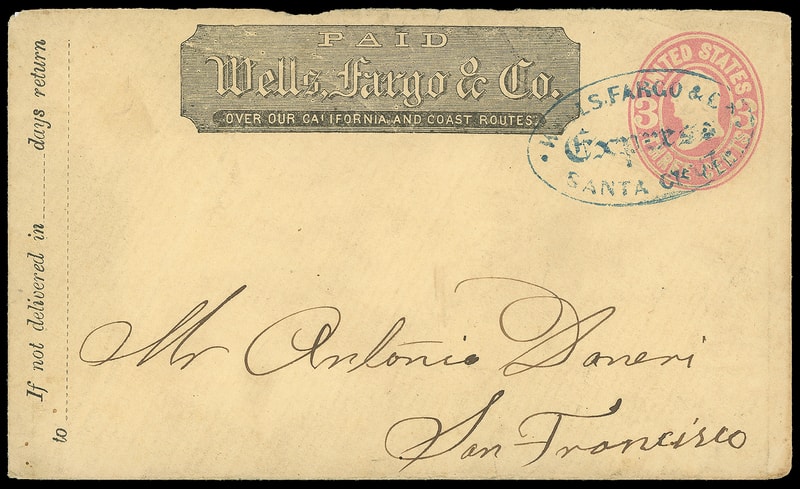 PAID
Wells, Fargo & Co.
OVER OUR CALIFORNIA AND COAST ROUTES.
UNITED STATES
3 3
THREE CENTS
WELLS, FARGO & CO
Express
SANTA
If not delivered in days return
to
Mr Antonio Daneri
San Francisco